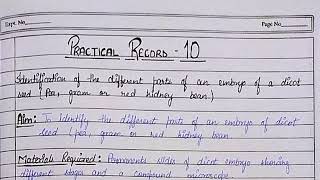 Expt. No.
Page No.
PRACTICAL RECORD - 10
Identification of the different parts of an embryo of a dicot
seed (Pea, gram or red kidney bean)
Aim: To Identify the different parts of an embryo of dicot
seed (pea, gram or red kidney bean
Materials Required: Permanents slides of dicot embryo showing
different stages and a compound microscope